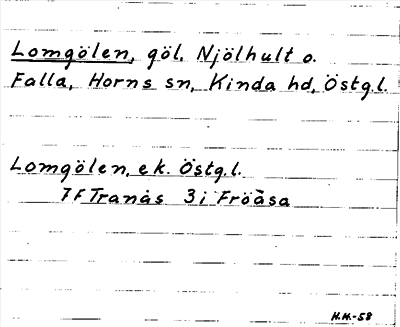 Lomgölen, göl, Njölhult o.
Falla, Horns sn, Kinda hd, Östg.l.
Lomgölen, ek. Östg.l.
7F Tranås 3 i Fröåsa
H.H.-58